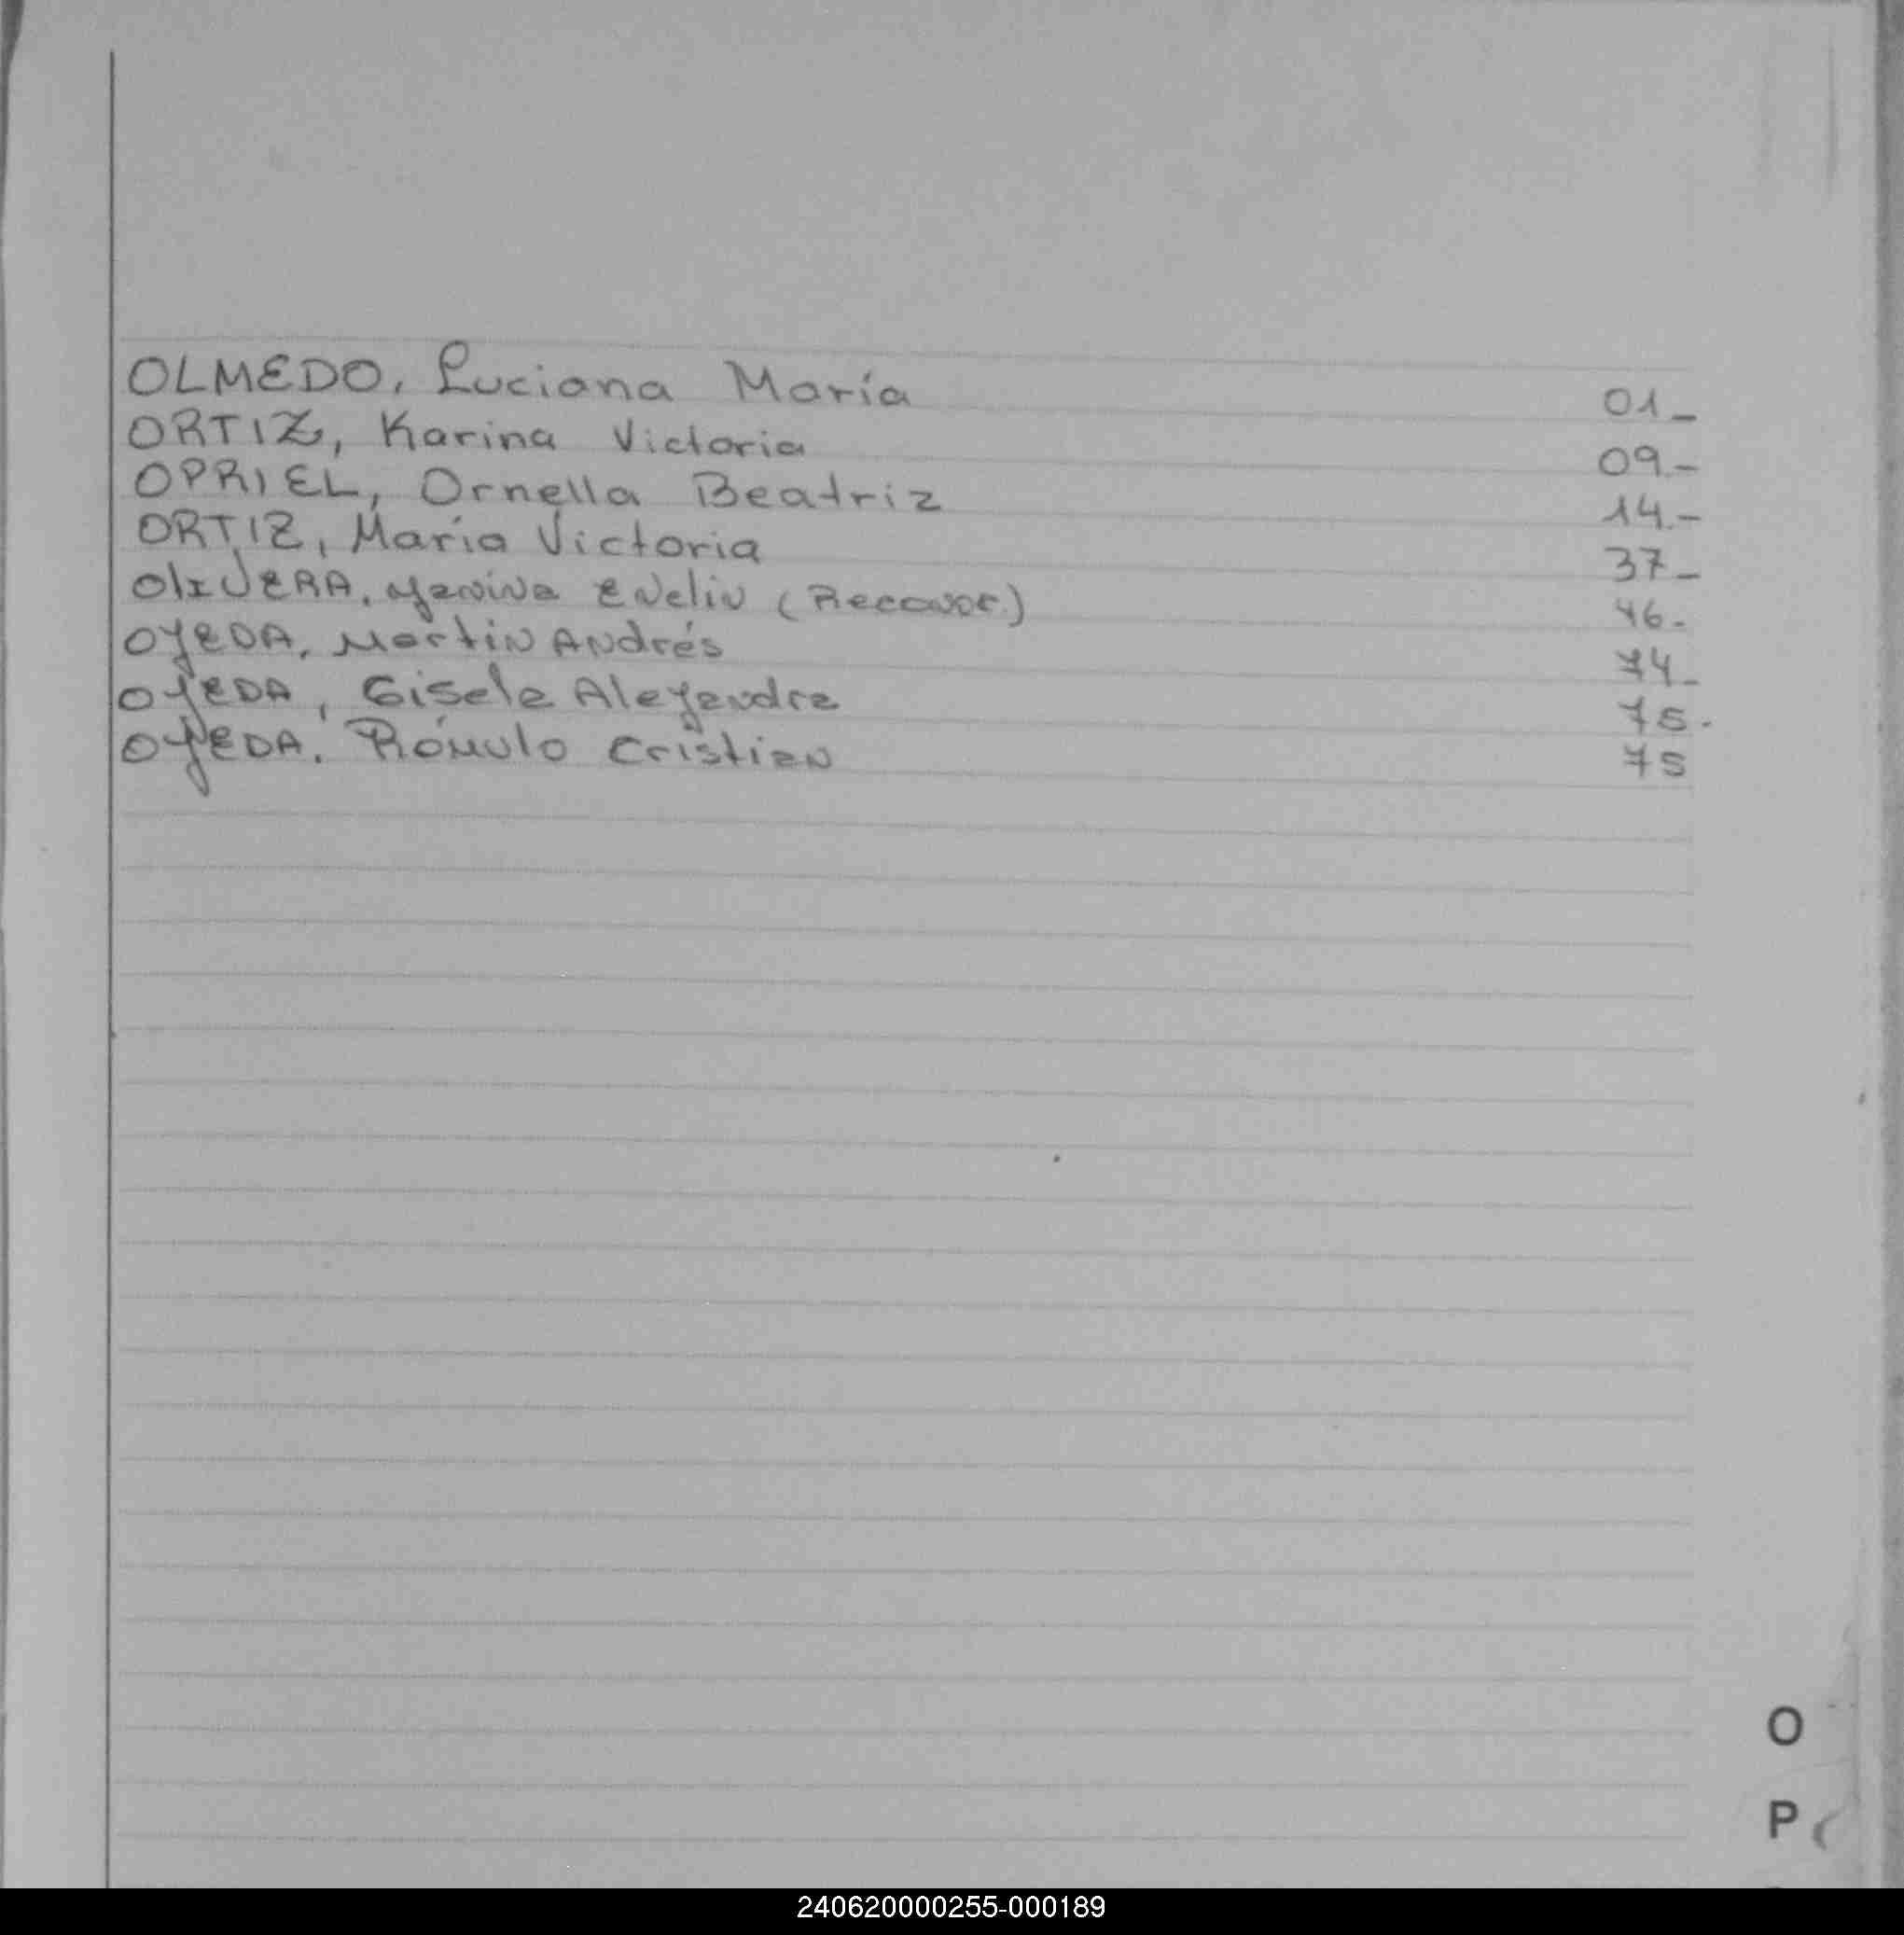 OLMEDO, Luciana María 01_
ORTIZ, Karina Victoria 09.-
OPRIEL, Ornella Beatriz 14.-
ORTIZ, María Victoria 37_
OlIVERA, Yanina Evelin (Reconoc.) 46.
OJEDA, Martín Andrés 74_
OJEDA, Gisela Alejandra 75.
OJEDA, Rómulo Cristian 75
O
P
240620000255-000189